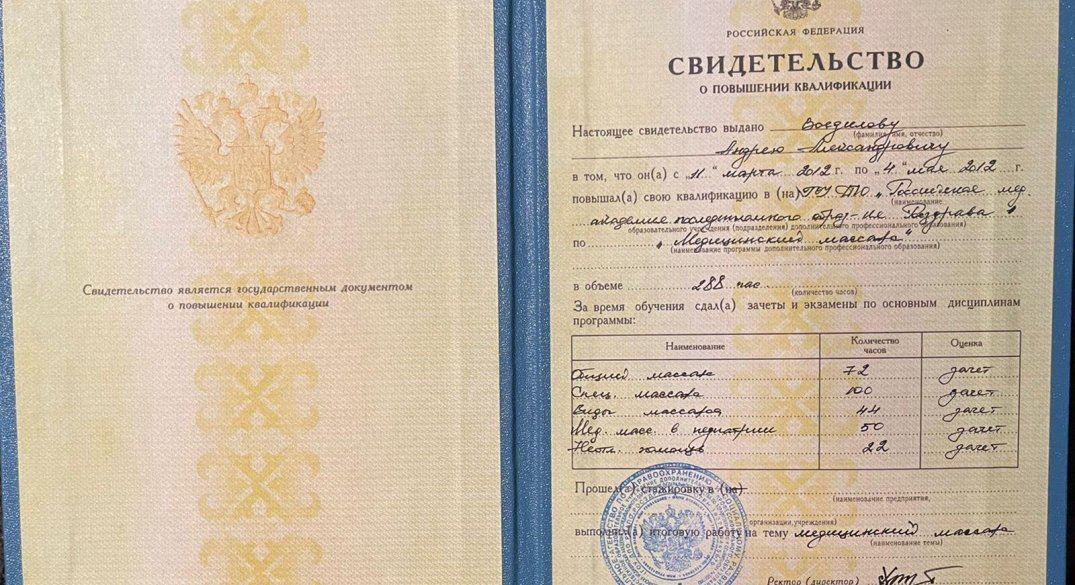 Свидетельство является государственным документом
о повышении квалификации
РОССИЙСКАЯ ФЕДЕРАЦИЯ
СВИДЕТЕЛЬСТВО
О ПОВЫШЕНИИ КВАЛИФИКАЦИИ
Настоящее свидетельство выдано
(фамилия, имя, отчество)
Андрею Александровичу
в том, что он(а) с „11“ марта 2012 г. по „4“ мая 2012 г.
повышал(а) свою квалификацию в (на) ГОУ ДПО „Российская мед.
(наименование
академия последипломного обраd-ия Росздрава“
образовательного учреждения (подразделения) дополнительного профессионального образования)
по „Медицинский массаж“
(наименование программы дополнительного профессионального образования)
в объеме 288 час.
(количество часов)
За время обучения сдал(а) зачеты и экзамены по основным дисциплинам
программы:
Наименование Количество часов Оценка
Общий массаж 72 зачет
Спец. массаж 100 зачет
Виды массажа 44 зачет
Мед. масс. в педиатрии 50 зачет
Неотл. помощь 22 зачет
Прошел(а) стажировку в (на)
(наименование предприятия,
организации, учреждения)
выполнил(а) итоговую работу на тему медицинский массаж
(наименование темы)
Ректор (директор)